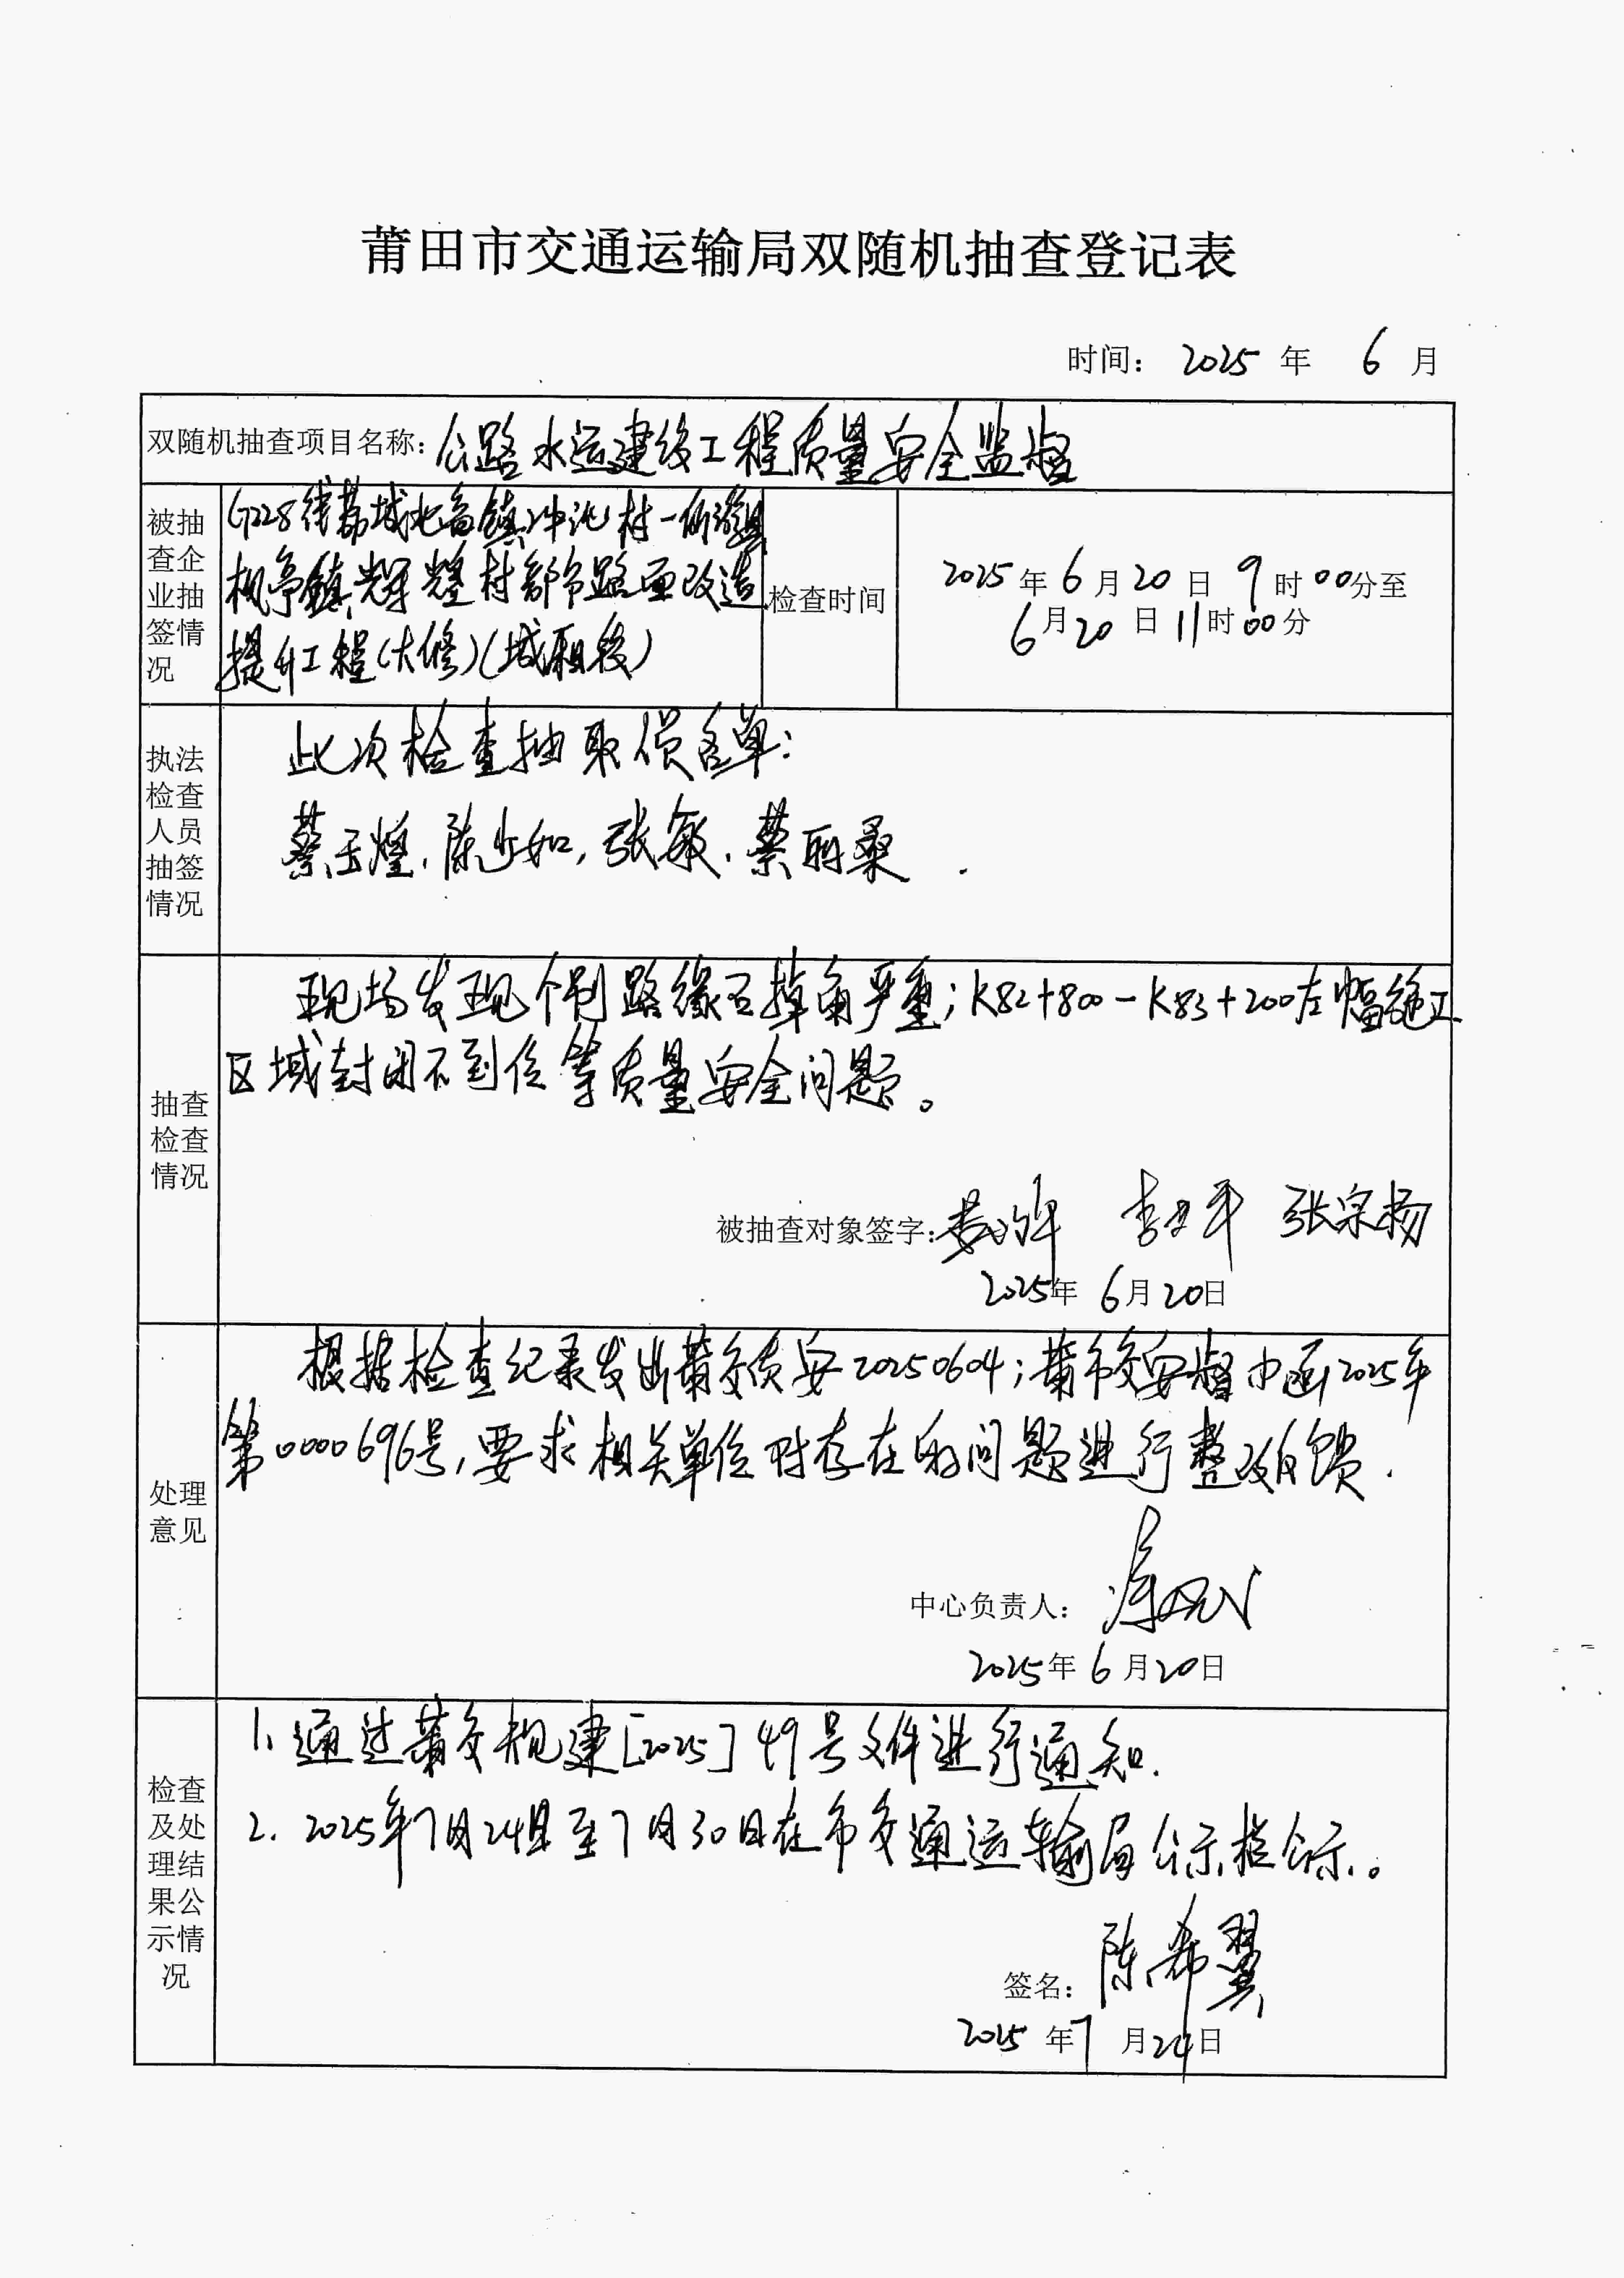 莆田市交通运输局双随机抽查登记表
时间： 2025 年 6 月
双随机抽查项目名称：公路水运建设工程质量安全监督
被抽查企业抽签情况
G228线荔城北高镇冲沁村一仙游县
枫亭镇辉煌村部分路面改造
提升工程(大修)(城厢段)
检查时间
2025 年 6 月 20 日 9 时 00 分至
6 月 20 日 11 时 00 分
执法检查人员抽签情况
此次检查抽取人员名单：
蔡玉煌、陈少如，张敏、蔡丽桑
抽查检查情况
现场发现个别路缘石掉角严重；K82+800-K83+200左幅施工
区域封闭不到位等质量安全问题。
被抽查对象签字： 张宗扬
2025年 6月20日
处理意见
根据检查纪录发出莆交质安20250604；莆市交安督中函2025年
第0000696号，要求相关单位对存在的问题进行整改反馈.
中心负责人：
2025年 6 月20日
检查及处理结果公示情况
1. 通过莆交规建[2025] 49号文件进行通知.
2. 2025年7月24日至7月30日在市交通运输局公示栏公示。
签名： 陈希翼
2025 年 7 月 24日